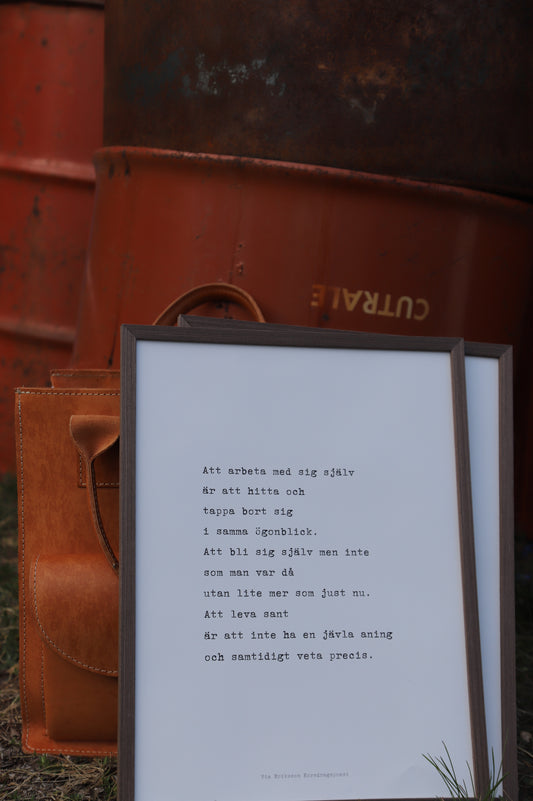 CUTRALE
Att arbeta med sig själv
är att hitta och
tappa bort sig
i samma ögonblick.
Att bli sig själv men inte
som man var då
utan lite mer som just nu.
Att leva sant
är att inte ha en jävla aning
och samtidigt veta precis.
Pia Eriksson